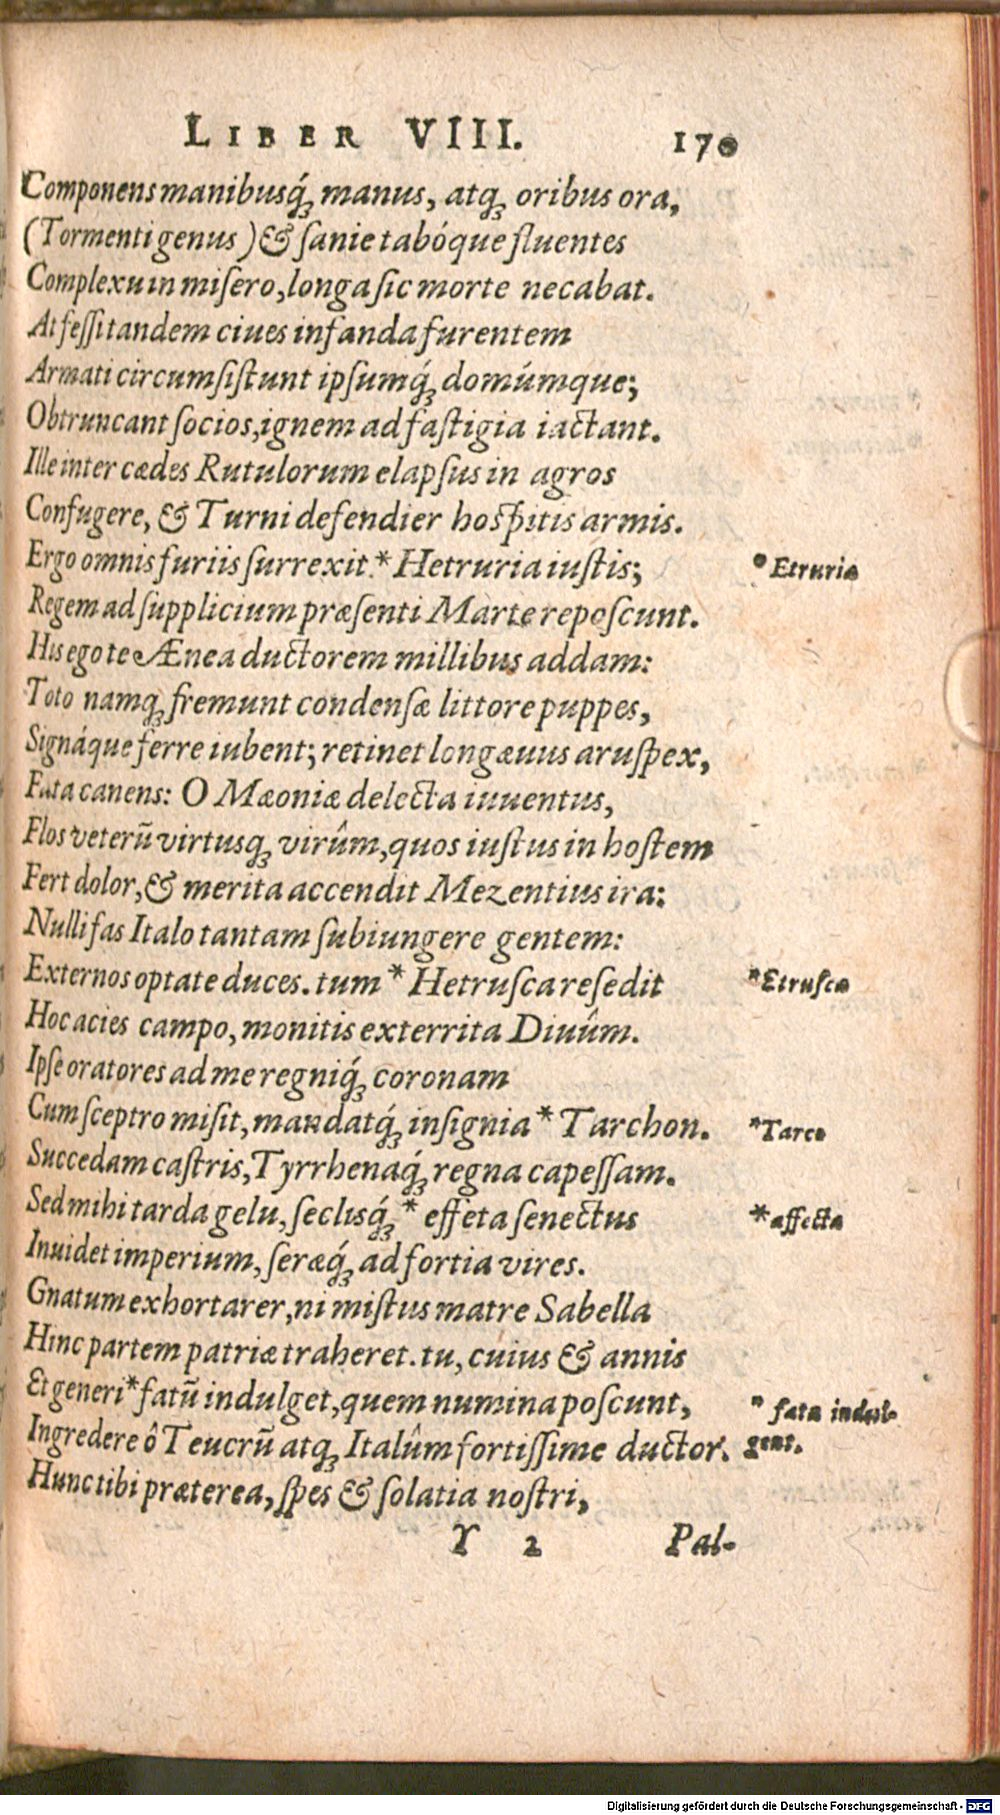 LIBER VIII. 170
Componens manibusq́; manus, atq; oribus ora,
(Tormenti genus) & sanie tabóque fluentes
Complexu in misero, longa sic morte necabat.
At fessi tandem ciues infanda furentem
Armati circumsistunt ipsumq́; domúmque;
Obtruncant socios, ignem ad fastigia iactant.
Ille inter cædes Rutulorum elapsus in agros
Confugere, & Turni defendier hospitis armis.
Ergo omnis furiis surrexit * Hetruria iustis; * Etruria
Regem ad supplicium præsenti Marte reposcunt.
His ego te Ænea ductorem millibus addam:
Toto namq; fremunt condensæ littore puppes,
Signáque ferre iubent; retinet longæuus aruspex,
Fata canens: O Mæoniæ delecta iuuentus,
Flos veterũ virtusq; virûm, quos iustus in hostem
Fert dolor, & merita accendit Mezentius ira:
Nulli fas Italo tantam subiungere gentem:
Externos optate duces. tum * Hetrusca resedit *Etrusca
Hoc acies campo, monitis exterrita Diuûm.
Ipse oratores ad me regniq́; coronam
Cum sceptro misit, mandatq́; insignia * Tarchon. *Tarco
Succedam castris, Tyrrhenaq́; regna capessam.
Sed mihi tarda gelu, seclisq́; * effeta senectus *affecta
Inuidet imperium, seræq́; ad fortia vires.
Gnatum exhortarer, ni mistus matre Sabella
Hinc partem patriæ traheret. tu, cuius & annis
Et generi * fatũ indulget, quem numina poscunt, * fata indul-
Ingredere ô Teucrũ atq; Italûm fortissime ductor. gent.
Hunc tibi præterea, spes & solatia nostri,
Y 2 Pal-
Digitalisierung gefördert durch die Deutsche Forschungsgemeinschaft - DFG